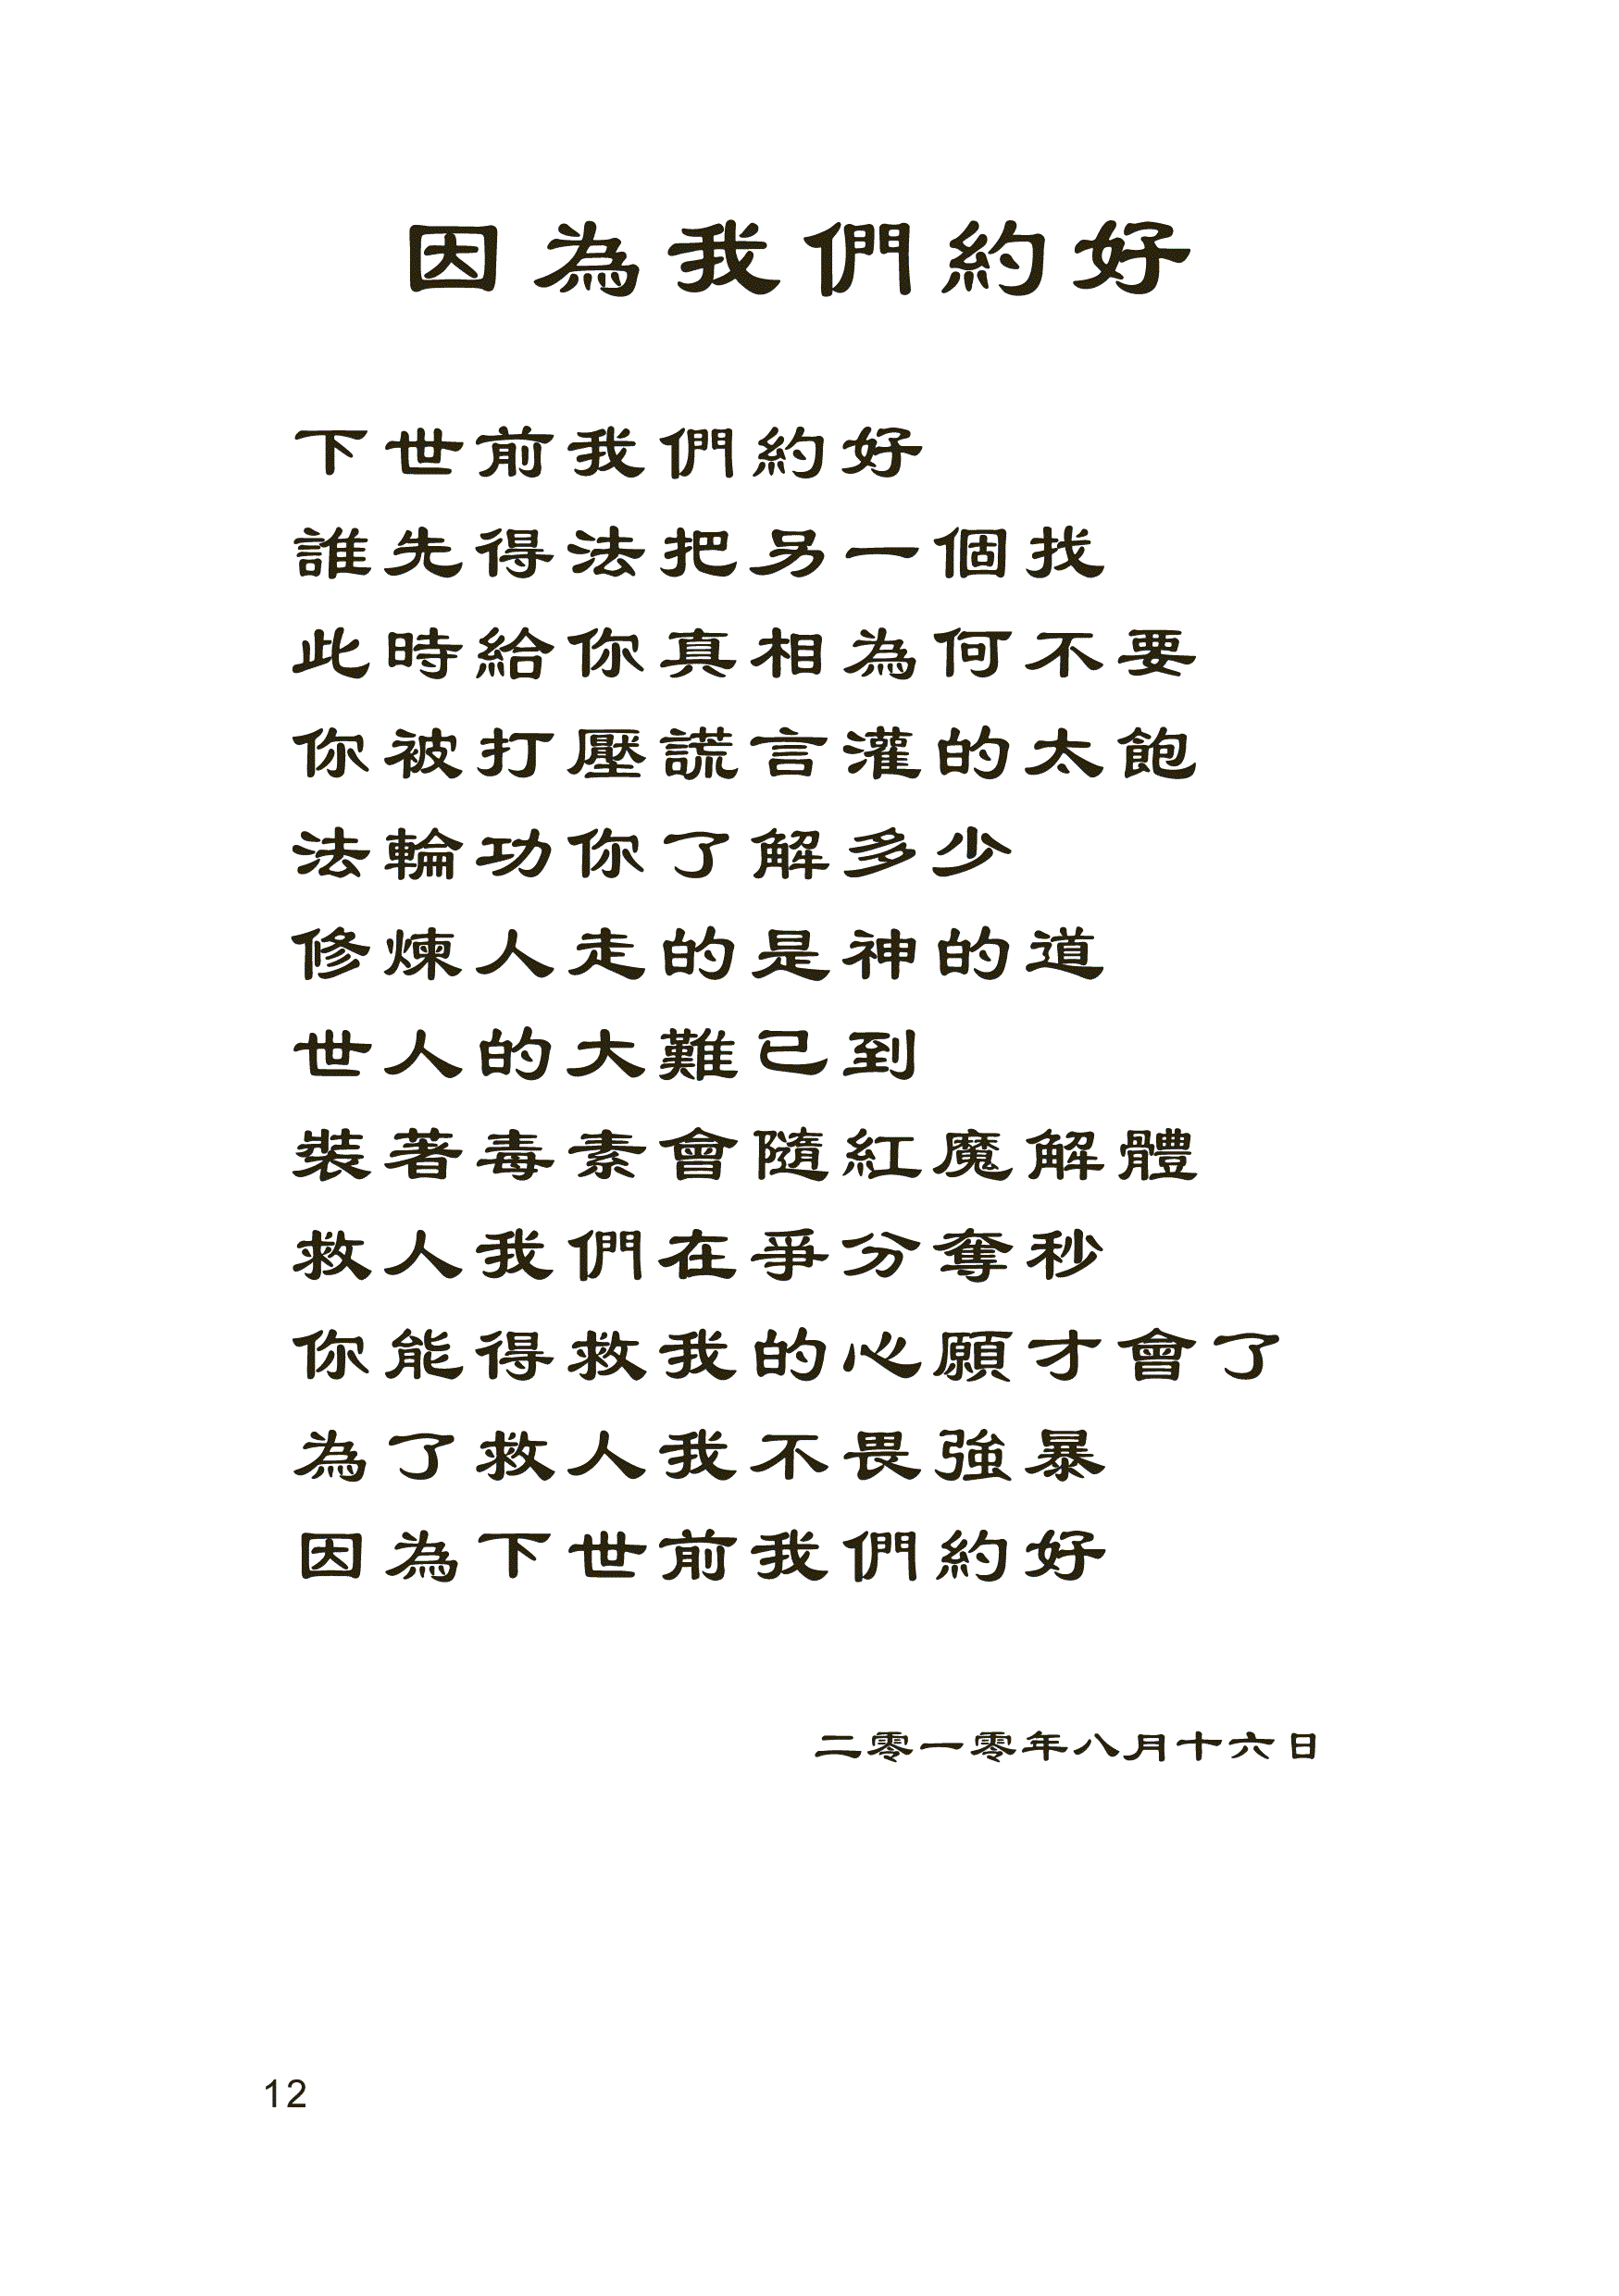 因為我們約好
下世前我們約好
誰先得法把另一個找
此時給你真相為何不要
你被打壓謊言灌的太飽
法輪功你了解多少
修煉人走的是神的道
世人的大難已到
裝著毒素會隨紅魔解體
救人我們在爭分奪秒
你能得救我的心願才會了
為了救人我不畏強暴
因為下世前我們約好
二零一零年八月十六日
12